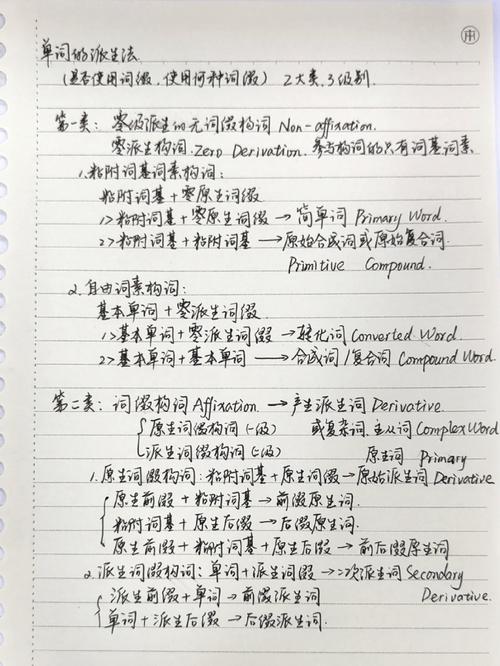 单词的派生法
(是否使用词缀,使用何种词缀) 2大类,3级别.
第一类: 零级派生的无词缀构词 Non-affixation.
零派生构词. Zero Derivation. 参与构词的只有词基词素.
1.粘附词基词素构词:
粘附词基+零原生词缀
1>粘附词基+零原生词缀→简单词 Primary Word.
2>粘附词基+粘附词基→原始合成词或原始复合词.
Primitive Compound.
2.自由词素构词:
基本单词+零派生词缀
1>基本单词+零派生词缀→转化词 Converted Word.
2>基本单词+基本单词→合成词/复合词 Compound Word
第二类: 词缀构词 Affixation.→产生派生词 Derivative.
原生词缀构词(一级) 或复杂词、主从词 Complex Word
派生词缀构词(二级) 原生词 Primary
1.原生词缀构词:粘附词基+原生词缀→原始派生词 Derivative
原生前缀+粘附词基→前缀原生词.
粘附词基+原生后缀→后缀原生词.
原生前缀+粘附词基+原生后缀→前后缀原生词
2.派生词缀构词:单词+派生词缀→二次派生词 Secondary
Derivative.
派生前缀+单词→前缀派生词
单词+派生后缀→后缀派生词.